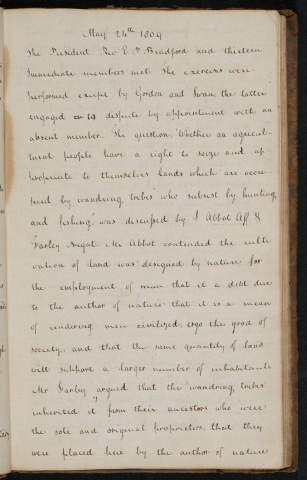 May 24th 1804
The President Rev E. P. Bradford and thirteen
Immediate members met. The exercises were
performed except by Gordon and Swan, the latter
engaged in dispute by appointment with an
absent member. The question, Whether an agricul-
tural people have a right to seize and ap-
propriate to themselves lands which are occu-
pied by wandring tribes who subsist by hunting
and fishing" was discussed by J Abbot Aff &
Farley Negat. Mr Abbot contended the culti-
vation of land was designed by nature for
the employment of man that it a debt due
to the author of nature that it is a mean
of rendering men civilized, ergo the good of
society, and that the same quantity of land
will support a larger number of inhabitants
Mr Farley argued that the wandring tribes
inherited it from their ancestors who were
the sole and original proprietors, that they
were placed here by the author of nature